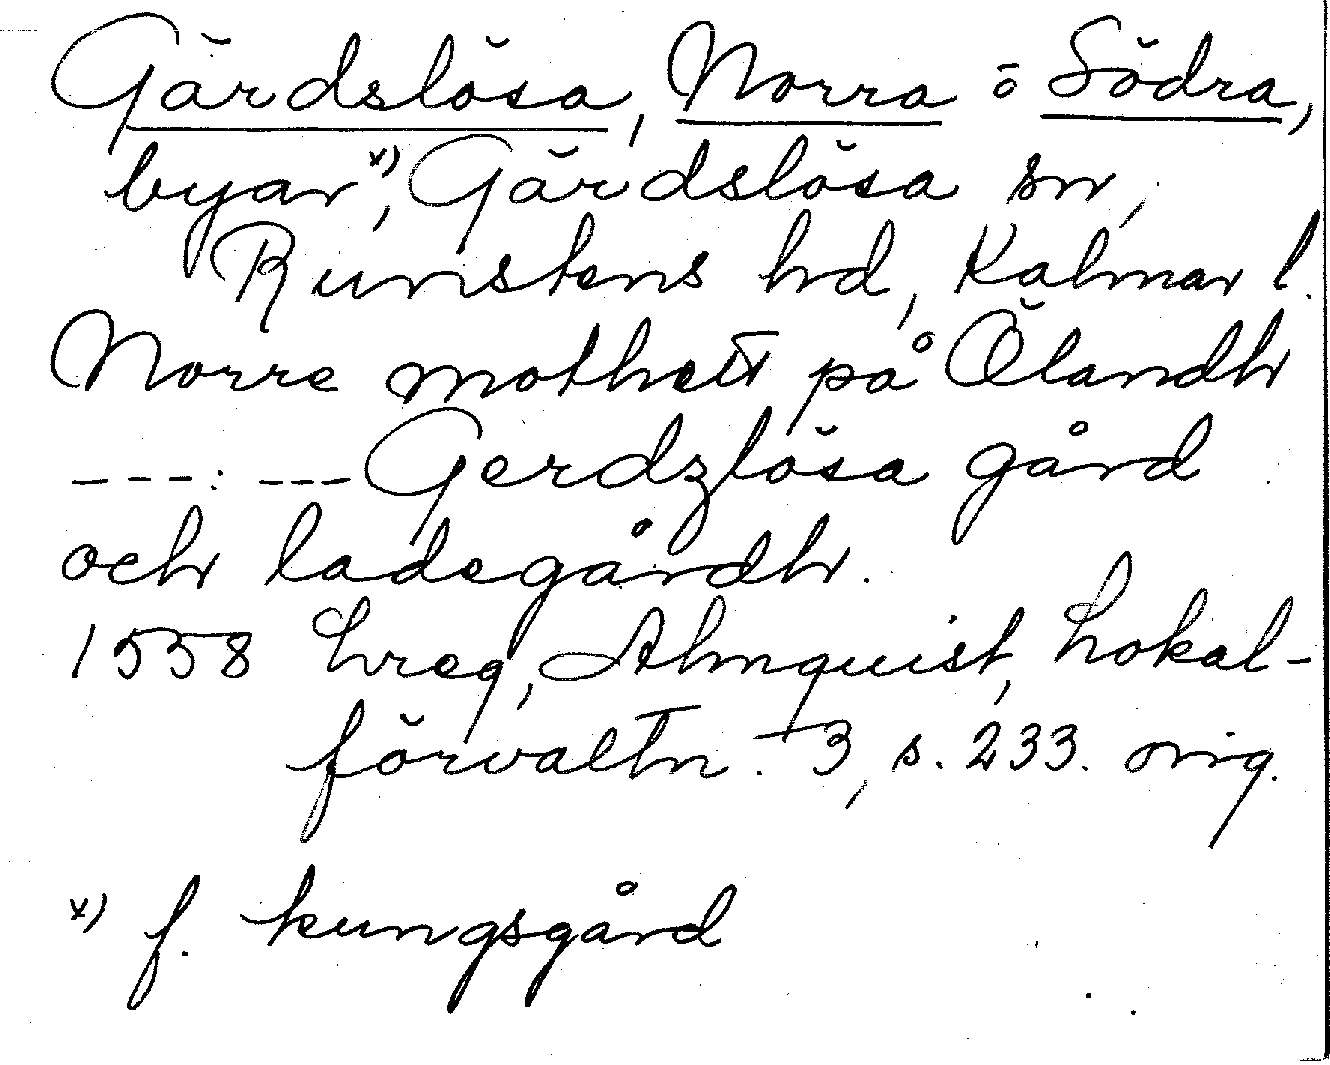 Gärdslösa, Norra o Södra,
byar x), Gärdslösa sn,
Runstens hd, Kalmar l.
Norre mothett på Ölandh
---: --- Gerdzlösa gård
och ladegårdh.
1558 Lreg, Almquist, Lokal-
förvaltn. 3, s. 233. orig.
x) f. kungsgård